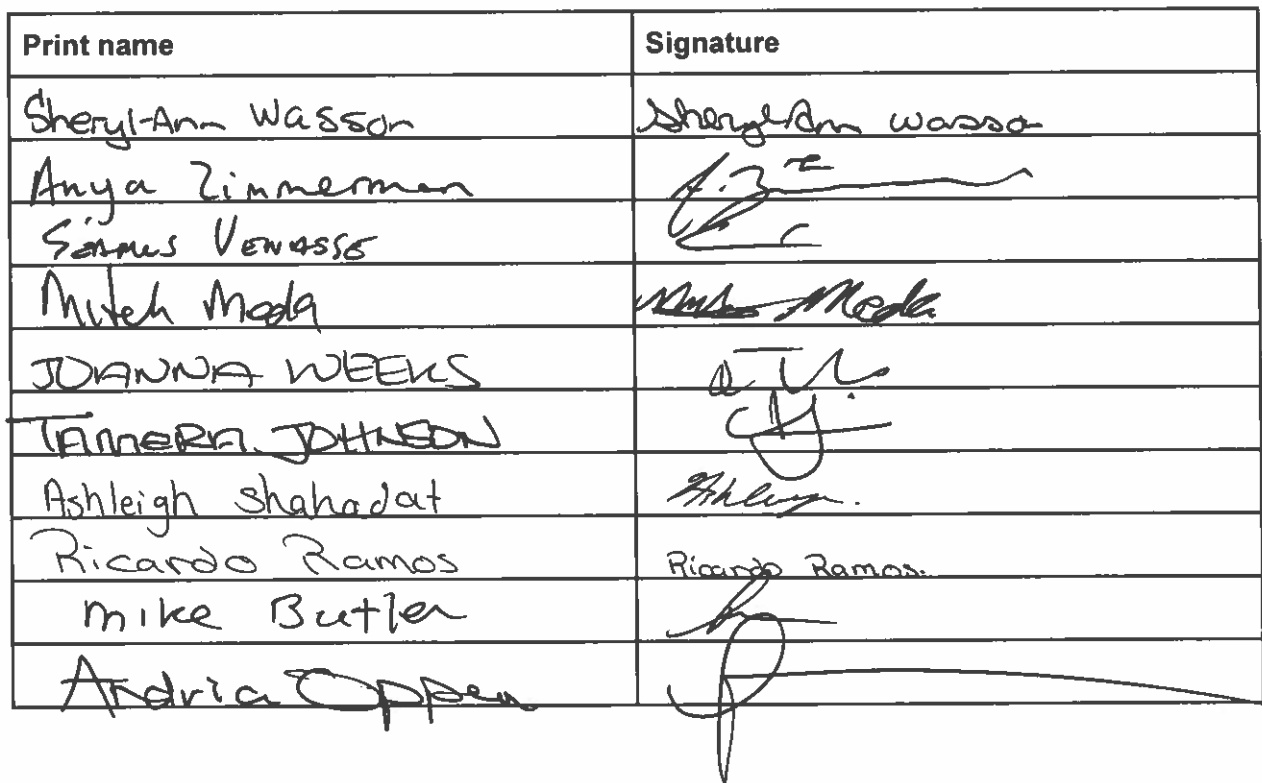 Print name Signature
Sheryl-Ann Wasson Sheryl-Ann Wasso
Anya Zimmerman
Séamus Venasse
Mitch Meda Meda
JOANNA WEEKS
TAMERA JOHNSON
Ashleigh Shahadat
Ricardo Ramos Ricardo Ramos.
Mike Butler
Andria Oppen